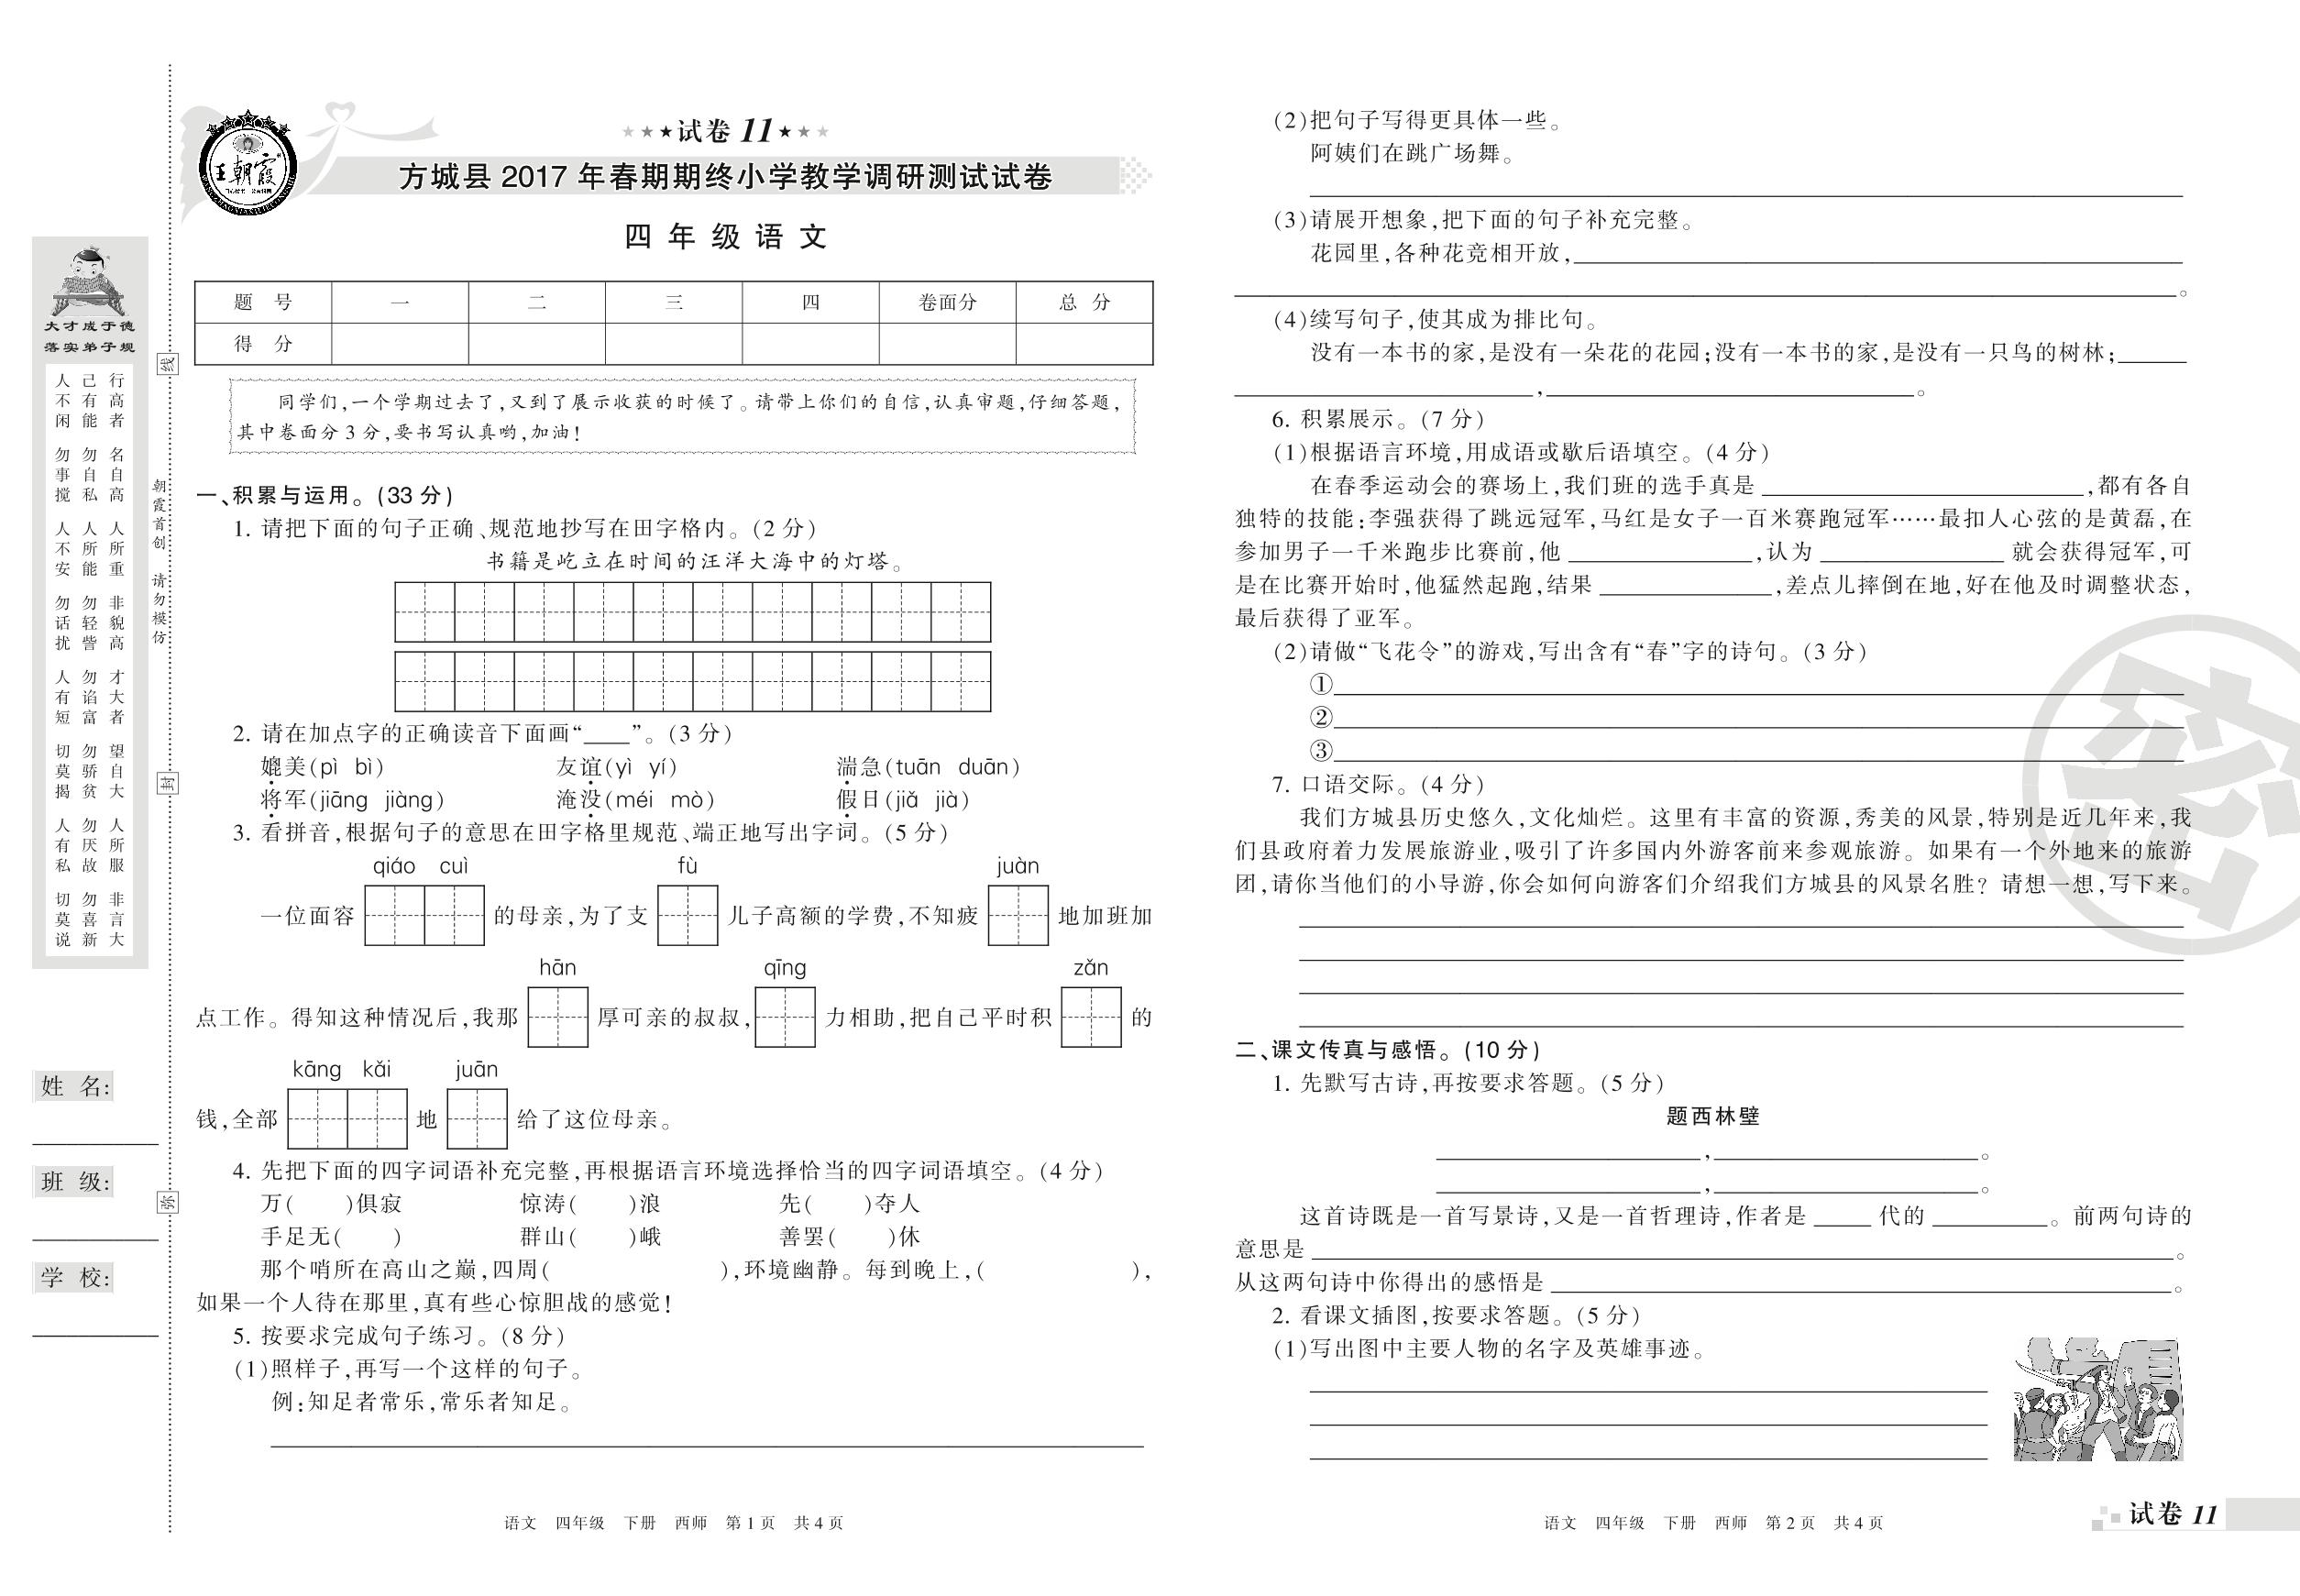 大才成于德
落实弟子规
行高者 名自高 人所重 非貌高 才大者 望自大 人所服 非言大
己有能 勿自私 人所能 勿轻訾 勿谄富 勿骄贫 勿厌故 勿喜新
人不闲 勿事搅 人不安 勿话扰 人有短 切莫揭 人有私 切莫说
朝霞首创 请勿模仿
姓 名:
班 级:
学 校:
线
封
弥
王朝霞
★★★试卷 11★★★
方城县 2017 年春期期终小学教学调研测试试卷
四 年 级 语 文
题 号 一 二 三 四 卷面分 总 分
得 分
同学们,一个学期过去了,又到了展示收获的时候了。请带上你们的自信,认真审题,仔细答题,
其中卷面分 3 分,要书写认真哟,加油!
一、积累与运用。(33 分)
1. 请把下面的句子正确、规范地抄写在田字格内。(2 分)
书籍是屹立在时间的汪洋大海中的灯塔。
2. 请在加点字的正确读音下面画“____”。(3 分)
媲美(pì bì) 友谊(yì yí) 湍急(tuān duān)
将军(jiāng jiàng) 淹没(méi mò) 假日(jiǎ jià)
3. 看拼音,根据句子的意思在田字格里规范、端正地写出字词。(5 分)
qiáo cuì fù juàn
一位面容 的母亲,为了支 儿子高额的学费,不知疲 地加班加
hān qīng zǎn
点工作。得知这种情况后,我那 厚可亲的叔叔, 力相助,把自己平时积 的
kāng kǎi juān
钱,全部 地 给了这位母亲。
4. 先把下面的四字词语补充完整,再根据语言环境选择恰当的四字词语填空。(4 分)
万( )俱寂 惊涛( )浪 先( )夺人
手足无( ) 群山( )峨 善罢( )休
那个哨所在高山之巅,四周( ),环境幽静。每到晚上,( ),
如果一个人待在那里,真有些心惊胆战的感觉!
5. 按要求完成句子练习。(8 分)
(1)照样子,再写一个这样的句子。
例:知足者常乐,常乐者知足。
语文 四年级 下册 西师 第 1 页 共 4 页
(2)把句子写得更具体一些。
阿姨们在跳广场舞。
(3)请展开想象,把下面的句子补充完整。
花园里,各种花竞相开放,____
____。
(4)续写句子,使其成为排比句。
没有一本书的家,是没有一朵花的花园;没有一本书的家,是没有一只鸟的树林;____
____,____。
6. 积累展示。(7 分)
(1)根据语言环境,用成语或歇后语填空。(4 分)
在春季运动会的赛场上,我们班的选手真是 ____,都有各自
独特的技能:李强获得了跳远冠军,马红是女子一百米赛跑冠军……最扣人心弦的是黄磊,在
参加男子一千米跑步比赛前,他 ____,认为 ____ 就会获得冠军,可
是在比赛开始时,他猛然起跑,结果 ____,差点儿摔倒在地,好在他及时调整状态,
最后获得了亚军。
(2)请做“飞花令”的游戏,写出含有“春”字的诗句。(3 分)
①____
②____
③____
7. 口语交际。(4 分)
我们方城县历史悠久,文化灿烂。这里有丰富的资源,秀美的风景,特别是近几年来,我
们县政府着力发展旅游业,吸引了许多国内外游客前来参观旅游。如果有一个外地来的旅游
团,请你当他们的小导游,你会如何向游客们介绍我们方城县的风景名胜? 请想一想,写下来。
密
二、课文传真与感悟。(10 分)
1. 先默写古诗,再按要求答题。(5 分)
题西林壁
____,____。
____,____。
这首诗既是一首写景诗,又是一首哲理诗,作者是 ____ 代的 ____。前两句诗的
意思是 ____。
从这两句诗中你得出的感悟是 ____。
2. 看课文插图,按要求答题。(5 分)
(1)写出图中主要人物的名字及英雄事迹。
语文 四年级 下册 西师 第 2 页 共 4 页
试卷 11